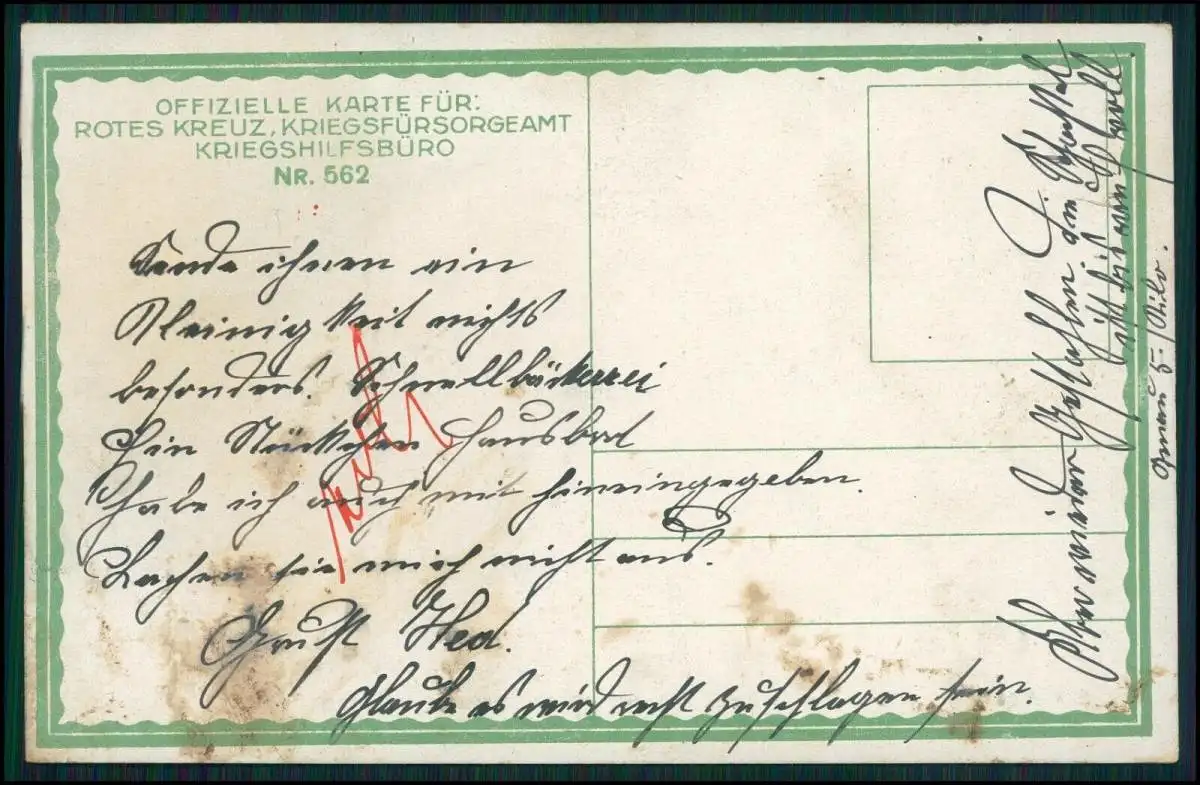 OFFIZIELLE KARTE FÜR:
ROTES KREUZ, KRIEGSFÜRSORGEAMT
KRIEGSHILFSBÜRO
NR. 562
Sende ihnen ein
Kleinigkeit nichts
besonders. Schnellbäckerei
Ein Stückchen Hausbrot
habe ich auch mit hineingegeben.
Lachen sie mich nicht aus.
Gruß
Glaube es wird recht zuschlagen sein.
ist bis voll
genau 5 Kilo.